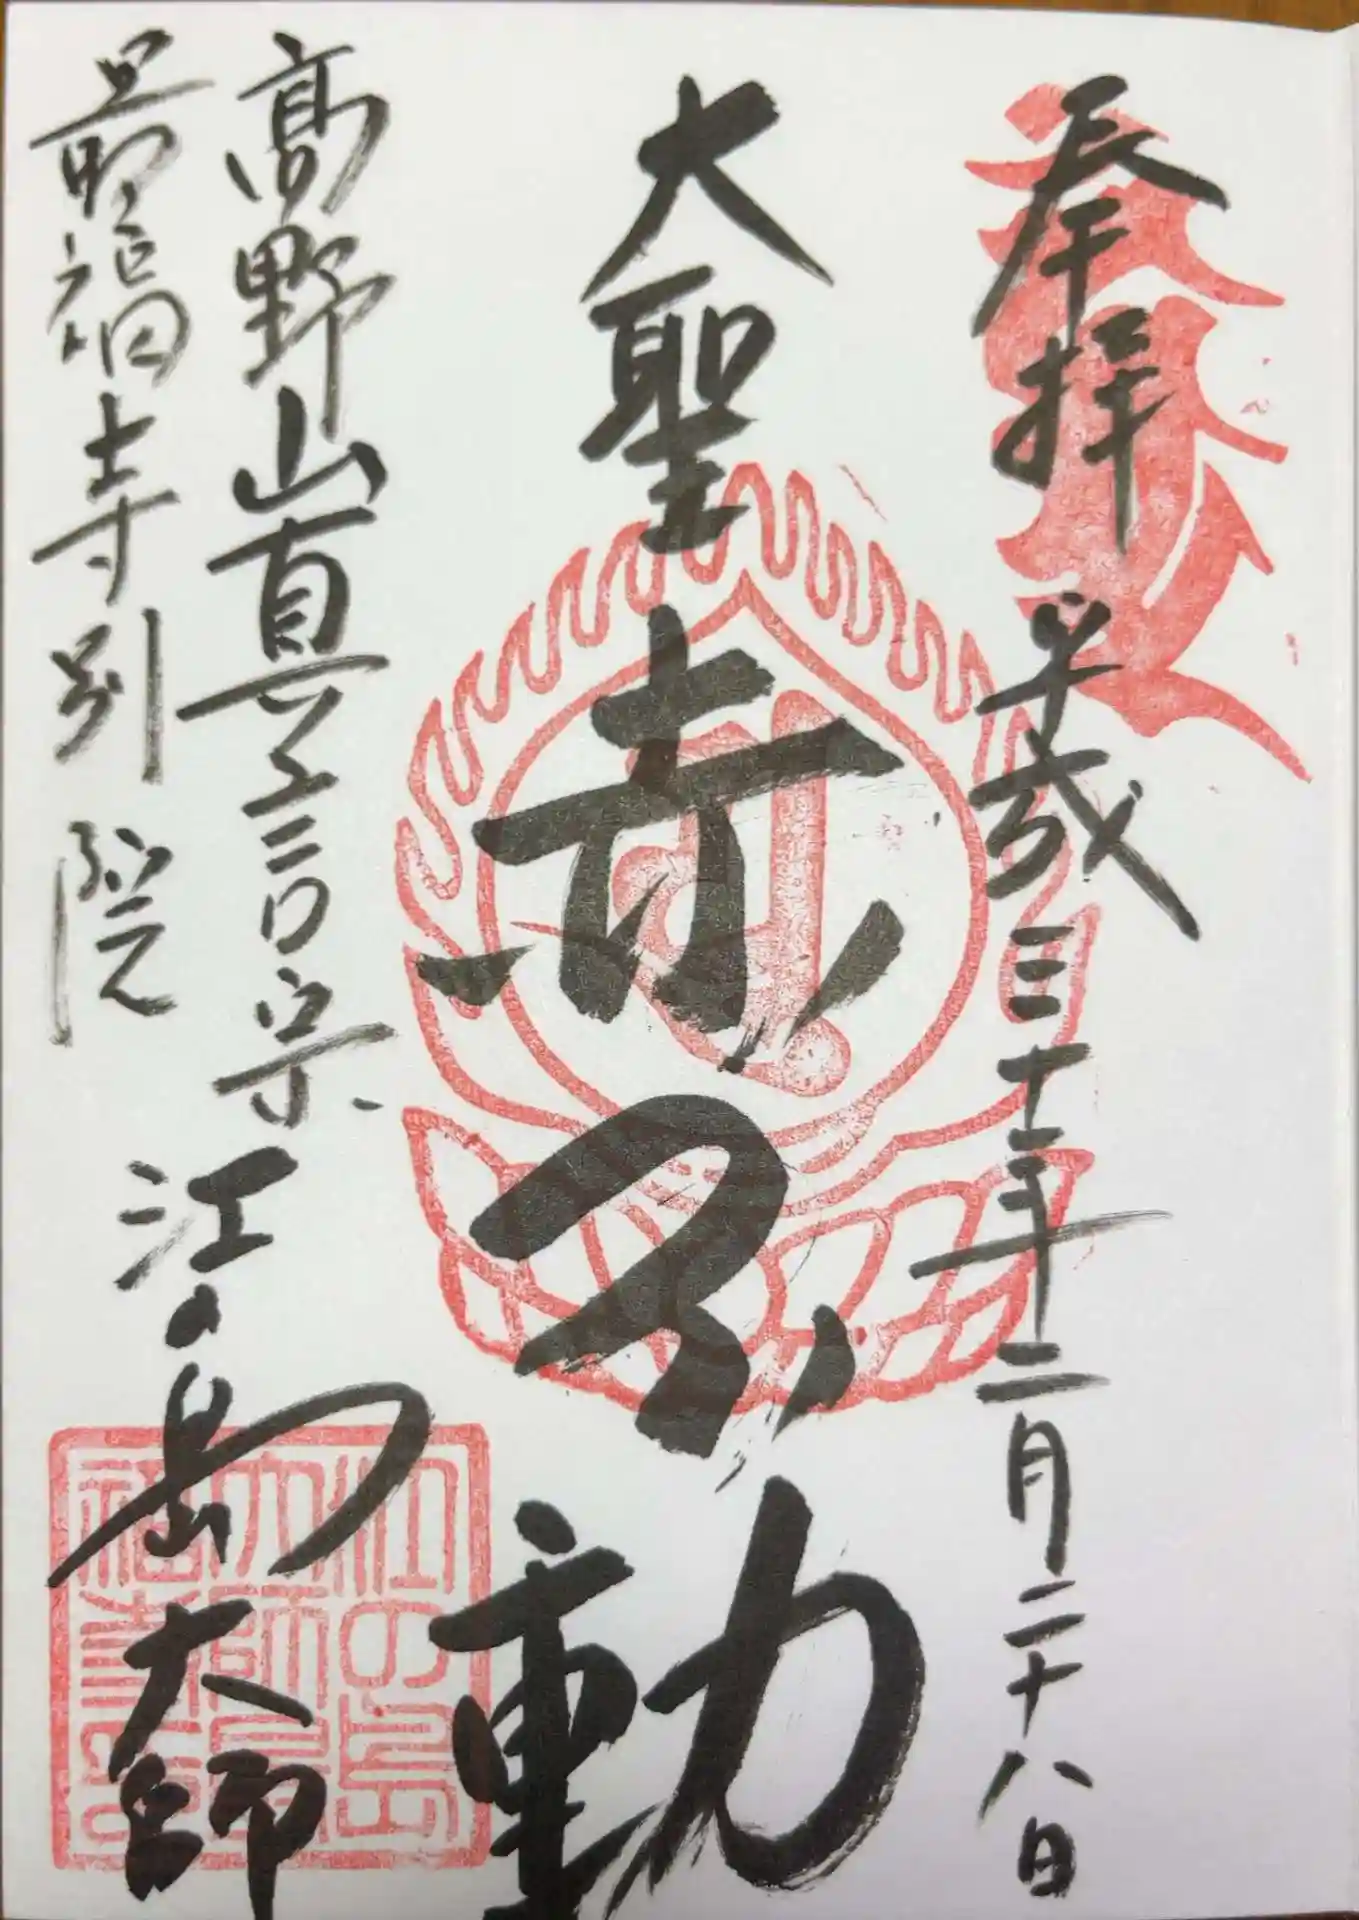 奉拝 平成三十年二月二十八日
大聖 赤不動
高野山真言宗 江の島大師
最福寺別院
江の島
大師